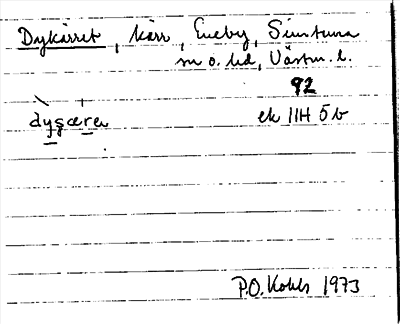 Dykärret, kärr, Eneby, Simtuna
sn o. hd, Västm. l.
92
dyçæren
ek 11H 5b
P.O. Kohls 1973